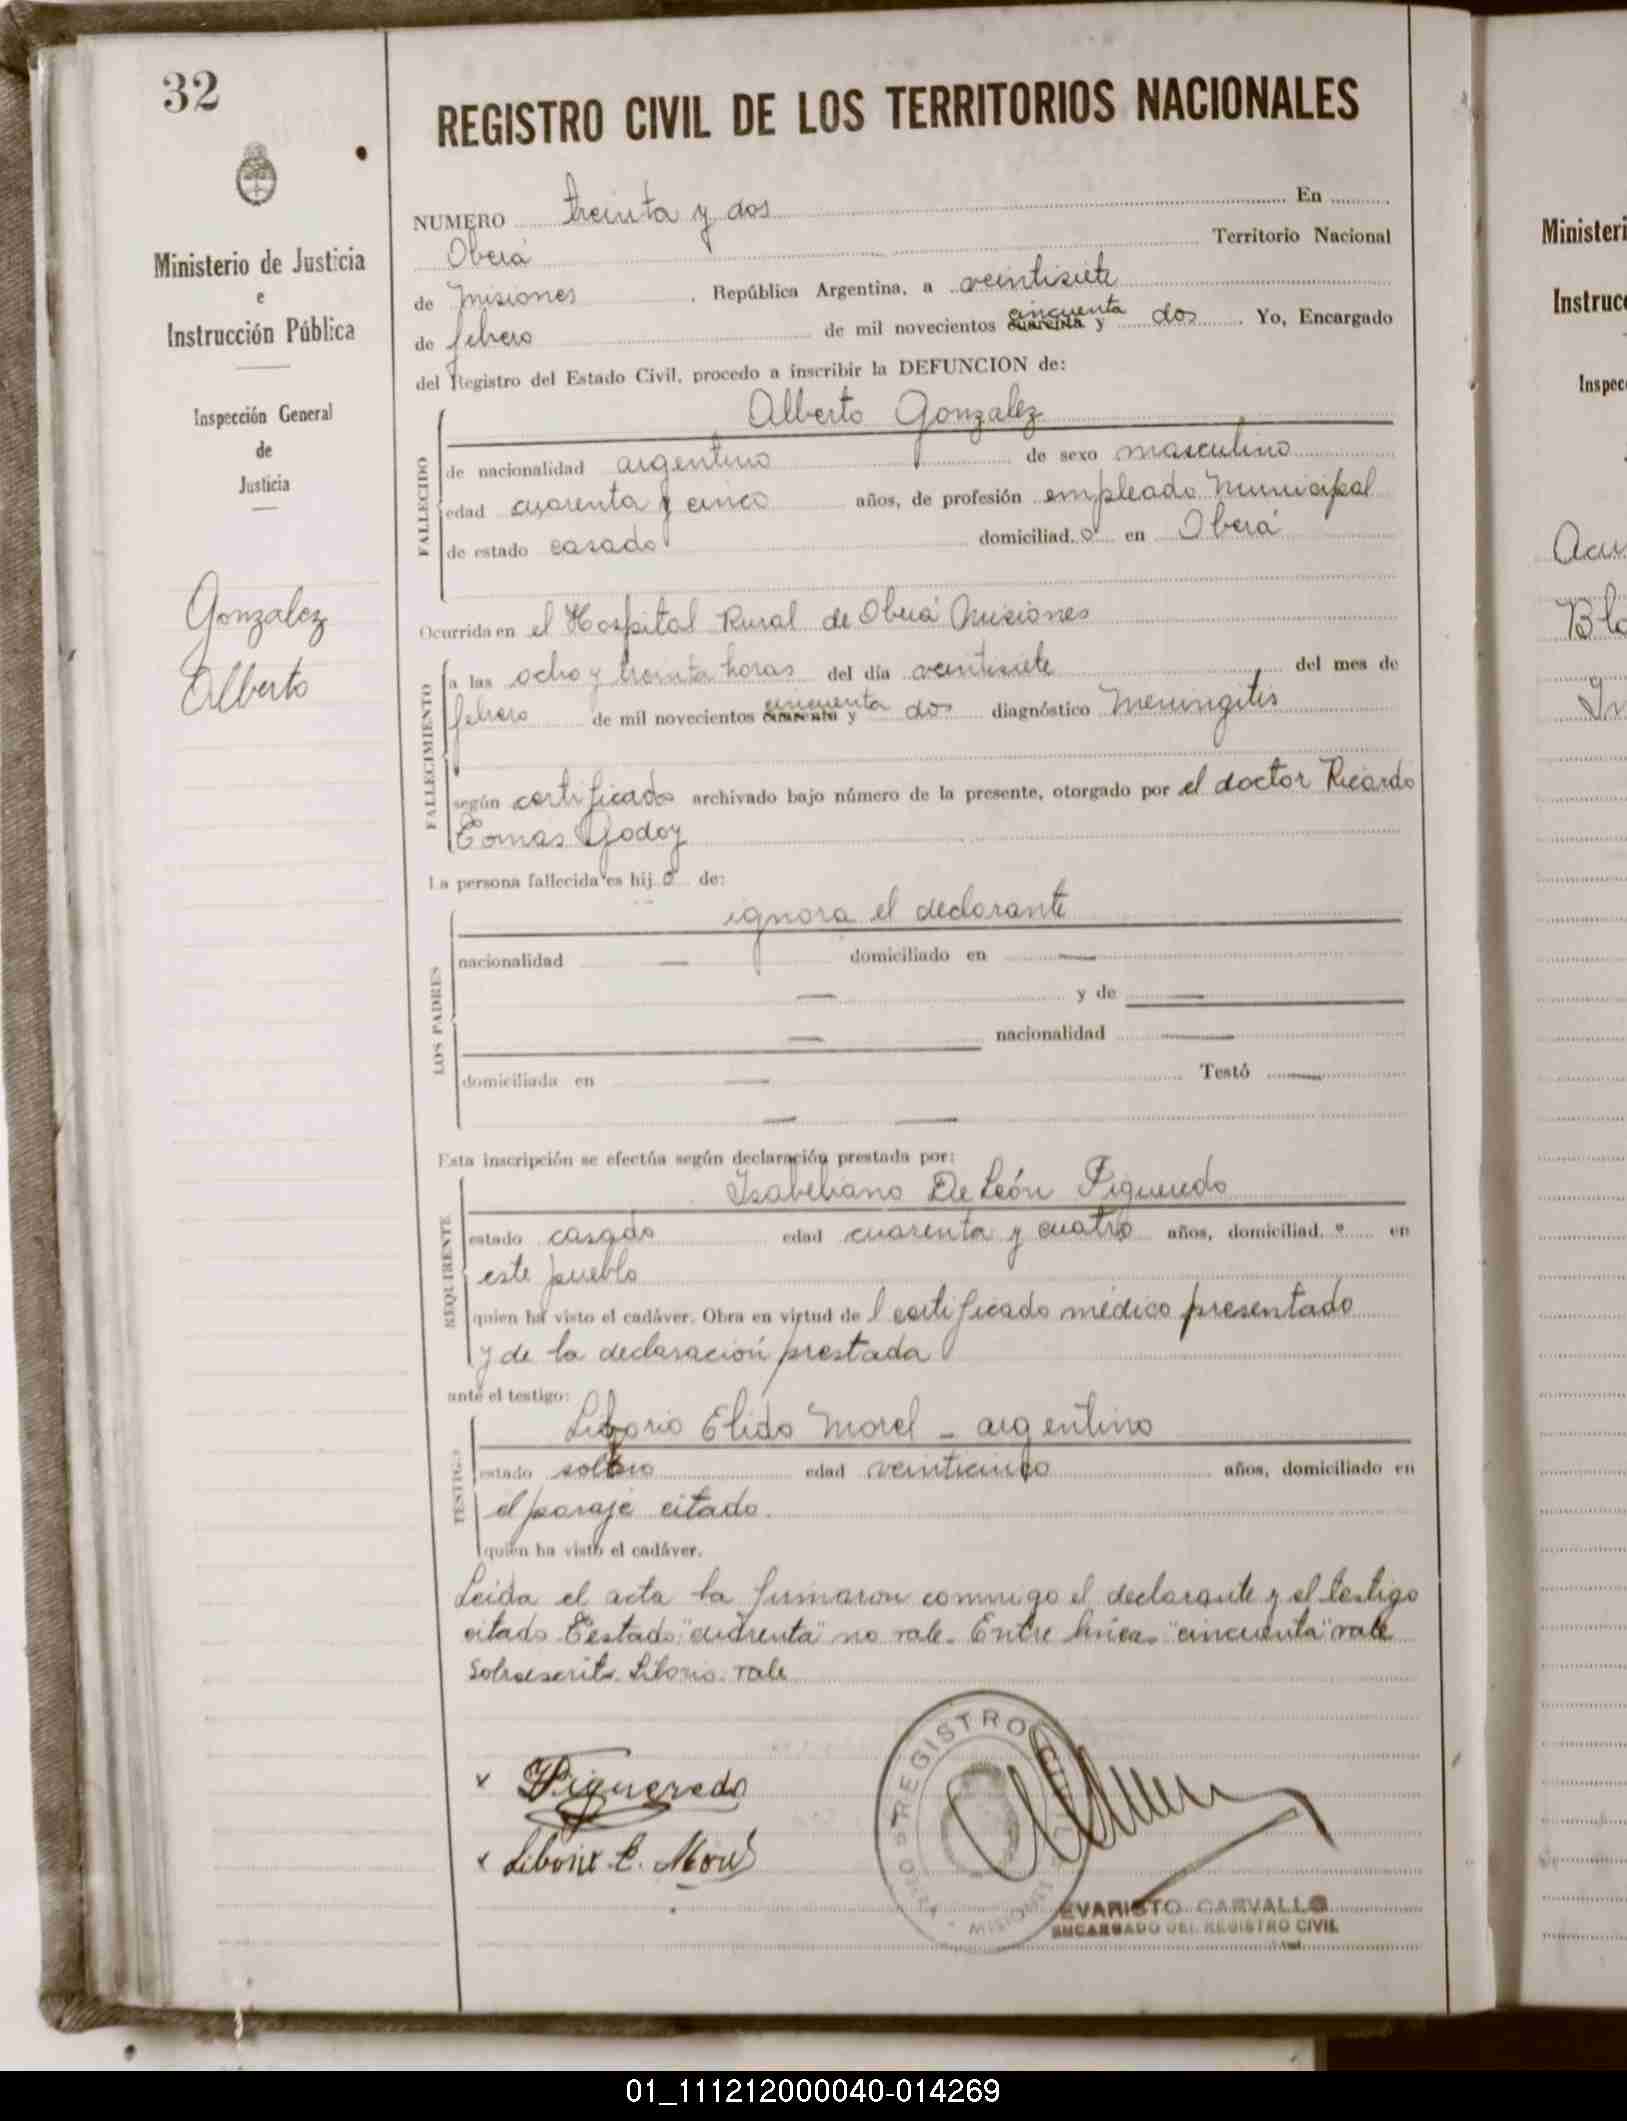 32
REGISTRO CIVIL DE LOS TERRITORIOS NACIONALES
Ministerio de Justicia
e
Instrucción Pública
Inspección General
de
Justicia
Gonzalez
Alberto
NUMERO treinta y dos En
Oberá Territorio Nacional
de Misiones, República Argentina, a veintisiete
cincuenta
de febrero de mil novecientos cuarenta y dos. Yo, Encargado
del Registro del Estado Civil, procedo a inscribir la DEFUNCION de:
FALLECIDO
Alberto Gonzalez
de nacionalidad argentino de sexo masculino
edad cuarenta y cinco años, de profesión empleado Municipal
de estado casado domiciliad.o en Oberá
Ocurrida en el Hospital Rural de Oberá Misiones
FALLECIMIENTO
a las ocho y treinta horas del día veintisiete del mes de
cincuenta
febrero de mil novecientos cuarenta y dos diagnóstico Meningitis
según certificado archivado bajo número de la presente, otorgado por el doctor Ricardo
Tomas Godoy
La persona fallecida es hij.o de:
LOS PADRES
ignora el declarante
nacionalidad — domiciliado en —
— y de —
— nacionalidad —
domiciliada en — Testó —
— —
Esta inscripción se efectúa según declaración prestada por:
REQUIRENTE
De León Figueredo
estado casado edad cuarenta y cuatro años, domiciliad.o en
este pueblo
quien ha visto el cadáver. Obra en virtud de l certificado médico presentado
y de la declaración prestada
ante el testigo:
TESTIGO
Liborio Elido Morel - argentino
estado soltero edad veinticinco años, domiciliado en
el paraje citado.
quien ha visto el cadáver.
Leida el acta la firmaron conmigo el declarante y el testigo
citado. Testado: "cuarenta" no vale. Entre lineas "cincuenta" vale
Sobreescrito. Liborio. vale
x Figueredo
x Liborio E. Morel
REGISTRO CIVIL
MISIONES
EVARISTO CARVALLO
ENCARGADO DEL REGISTRO CIVIL
Ministeri
Instrucc
Inspec
01_111212000040-014269